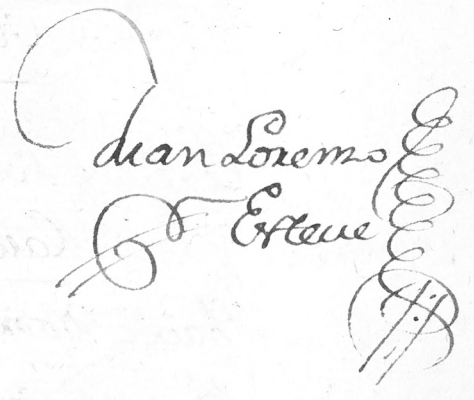 Juan Lorenzo
Esteve